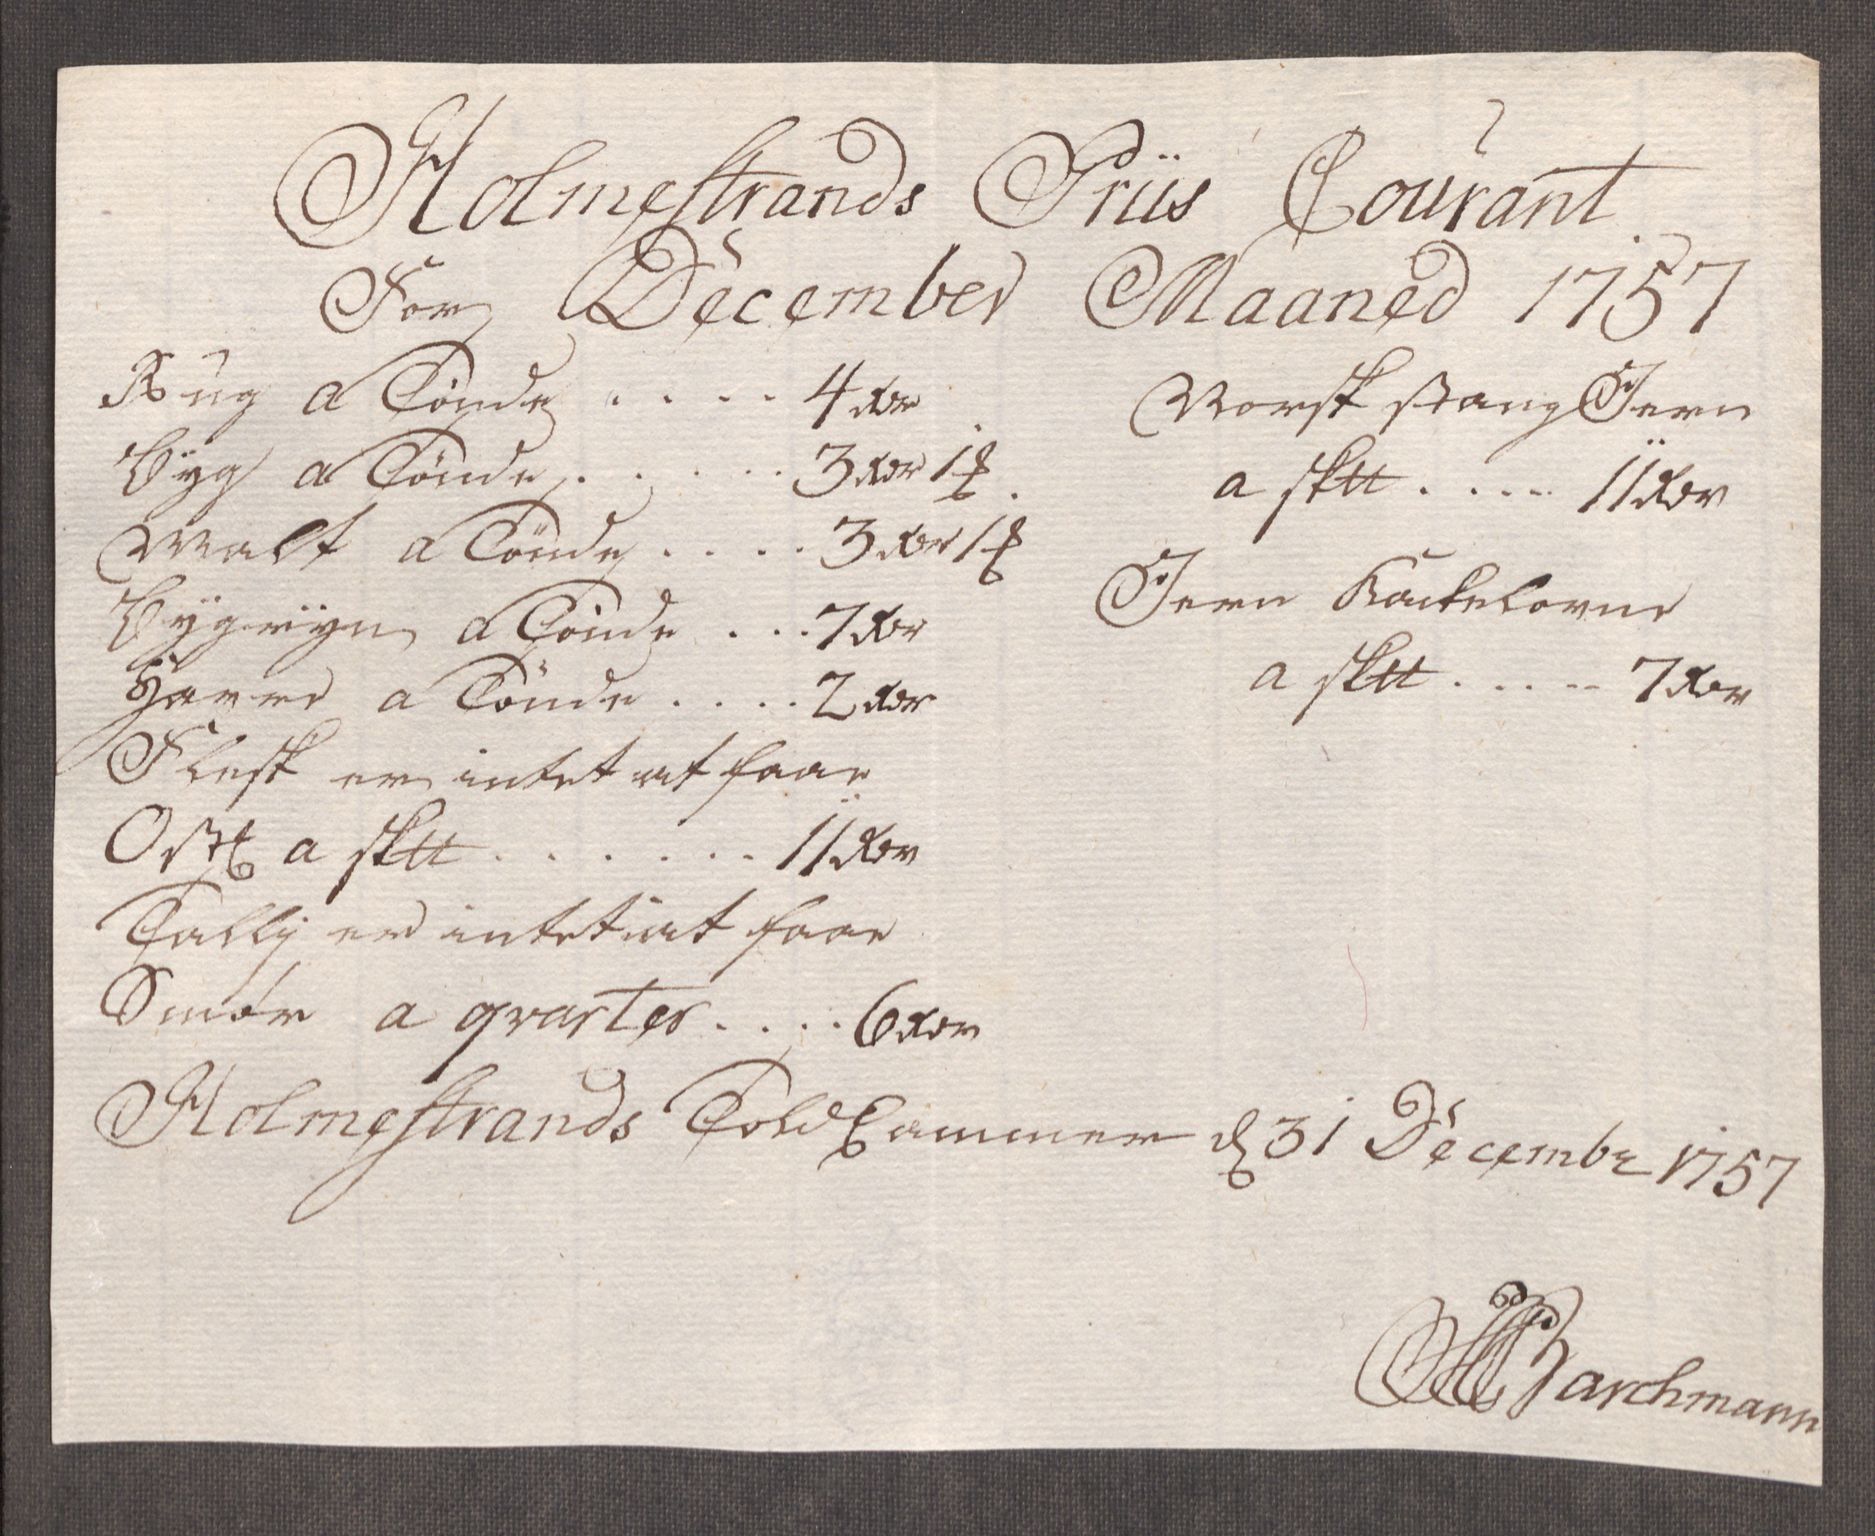 Holmestrands Priis Courant
For December Maaned 1757
Rug a Tönde . . . . 4 rdr
Byg a Tönde . . . . . 3 rdr 1 ꝑ
Malt a Tönde . . . . 3 rdr 1 ꝑ
Byggryn a Tönde . . . 7 rdr
Havre a Tönde . . . . 2 rdr
Flesk er intet at faae
Oste a sktt . . . . . . 11 rdr
Tallig er intet at faae
Smör a qvarter . . . . 6 rdr
Norsk stang Jern
a sktt . . . . . 11 rdr
Jern Kackelovne
a sktt . . . . . 7 rdr
Holmestrands Told Cammer d 31 Decembr 1757
Barchmann